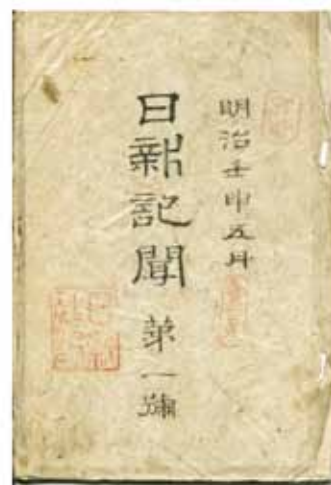 明治壬申五月
日新記聞 第一號